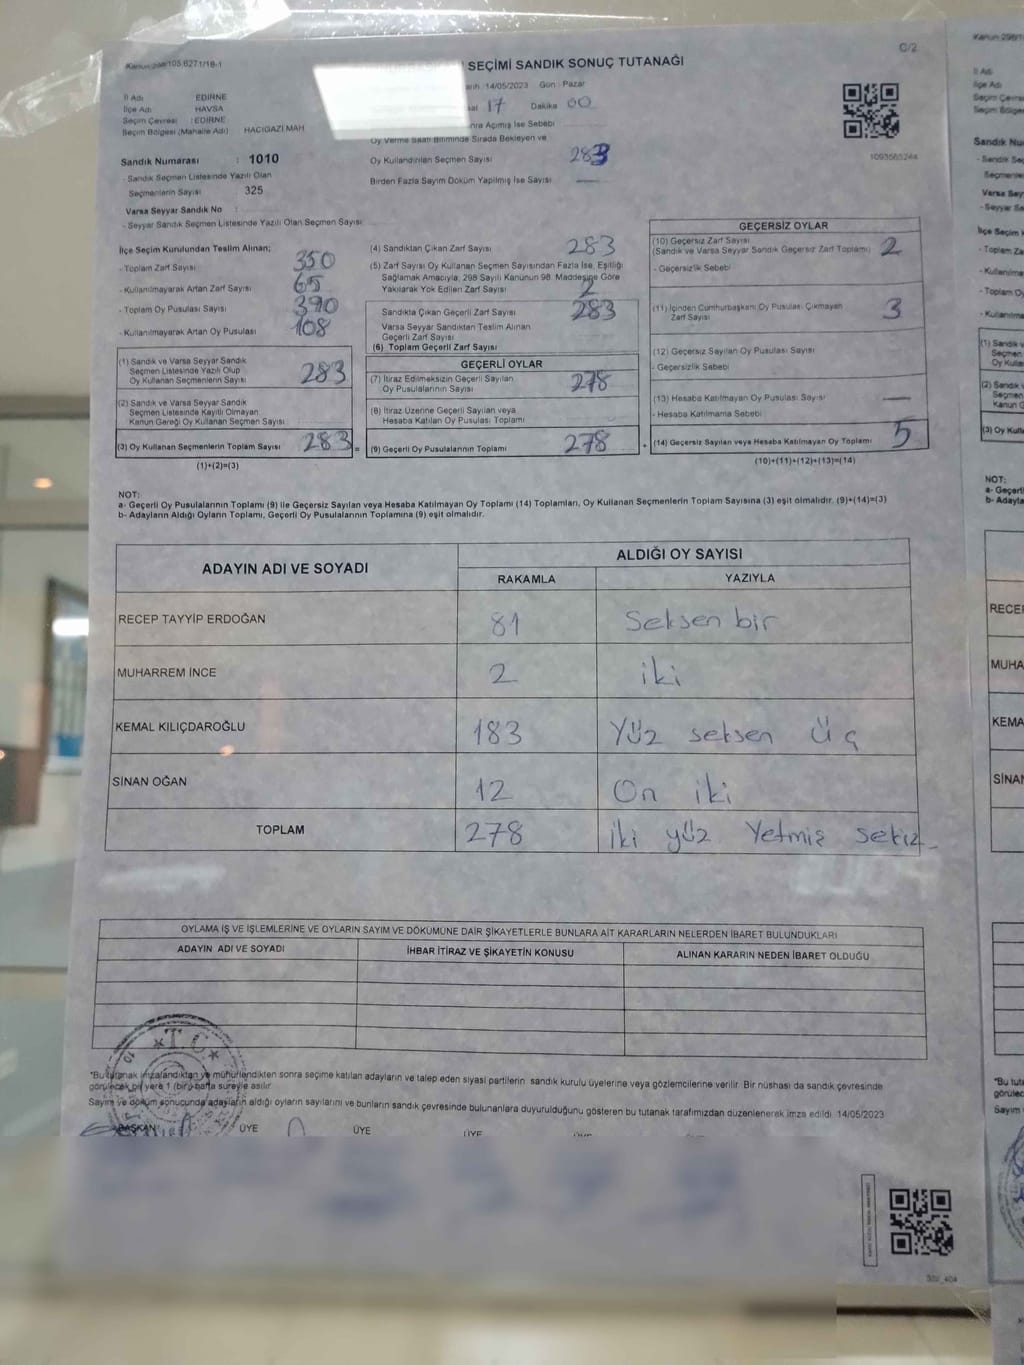 Kanun 298/105,6271/18-1
C/2
SEÇİMİ SANDIK SONUÇ TUTANAĞI
14/05/2023 Gün : Pazar
İl Adı EDİRNE
İlçe Adı HAVSA
Seçim Çevresi : EDİRNE
Seçim Bölgesi (Mahalle Adı) HACIGAZİ MAH
17 Dakika 00
Açımış İse Sebebi
Oy Verme Saati Bitiminde Sırada Bekleyen ve
Oy Kullandırılan Seçmen Sayısı 283
Birden Fazla Sayım Döküm Yapılmış İse Sayısı —
1093565244
Sandık Numarası : 1010
- Sandık Seçmen Listesinde Yazılı Olan
Seçmenlerin Sayısı 325
Varsa Seyyar Sandık No :
- Seyyar Sandık Seçmen Listesinde Yazılı Olan Seçmen Sayısı
İlçe Seçim Kurulundan Teslim Alınan;
- Toplam Zarf Sayısı 350
- Kullanılmayarak Artan Zarf Sayısı 65
- Toplam Oy Pusulası Sayısı 390
- Kullanılmayarak Artan Oy Pusulası 108
(1) Sandık ve Varsa Seyyar Sandık
Seçmen Listesinde Yazılı Olup
Oy Kullanan Seçmenlerin Sayısı 283
(2) Sandık ve Varsa Seyyar Sandık
Seçmen Listesinde Kayıtlı Olmayan
Kanun Gereği Oy Kullanan Seçmen Sayısı
(3) Oy Kullanan Seçmenlerin Toplam Sayısı 283 =
(1)+(2)=(3)
(4) Sandıktan Çıkan Zarf Sayısı 283
(5) Zarf Sayısı Oy Kullanan Seçmen Sayısından Fazla İse, Eşitliği
Sağlamak Amacıyla, 298 Sayılı Kanunun 98. Maddesine Göre
Yakılarak Yok Edilen Zarf Sayısı 2
Sandıkta Çıkan Geçerli Zarf Sayısı 283
Varsa Seyyar Sandıktan Teslim Alınan
Geçerli Zarf Sayısı
(6) Toplam Geçerli Zarf Sayısı
GEÇERLİ OYLAR
(7) İtiraz Edilmeksizin Geçerli Sayılan
Oy Pusulalarının Sayısı 278
(8) İtiraz Üzerine Geçerli Sayılan veya
Hesaba Katılan Oy Pusulası Toplamı
(9) Geçerli Oy Pusulalarının Toplamı 278 +
GEÇERSİZ OYLAR
(10) Geçersiz Zarf Sayısı
(Sandık ve Varsa Seyyar Sandık Geçersiz Zarf Toplamı) 2
- Geçersizlik Sebebi
(11) İçinden Cumhurbaşkanı Oy Pusulası Çıkmayan
Zarf Sayısı 3
(12) Geçersiz Sayılan Oy Pusulası Sayısı
- Geçersizlik Sebebi
(13) Hesaba Katılmayan Oy Pusulası Sayısı —
- Hesaba Katılmama Sebebi
(14) Geçersiz Sayılan veya Hesaba Katılmayan Oy Toplamı 5
(10)+(11)+(12)+(13)=(14)
NOT:
a- Geçerli Oy Pusulalarının Toplamı (9) ile Geçersiz Sayılan veya Hesaba Katılmayan Oy Toplamı (14) Toplamları, Oy Kullanan Seçmenlerin Toplam Sayısına (3) eşit olmalıdır. (9)+(14)=(3)
b- Adayların Aldığı Oyların Toplamı, Geçerli Oy Pusulalarının Toplamına (9) eşit olmalıdır.
ADAYIN ADI VE SOYADI ALDIĞI OY SAYISI
RAKAMLA YAZIYLA
RECEP TAYYİP ERDOĞAN 81 Seksen bir
MUHARREM İNCE 2 iki
KEMAL KILIÇDAROĞLU 183 Yüz seksen üç
SİNAN OĞAN 12 On iki
TOPLAM 278 iki yüz Yetmiş sekiz
OYLAMA İŞ VE İŞLEMLERİNE VE OYLARIN SAYIM VE DÖKÜMÜNE DAİR ŞİKAYETLERLE BUNLARA AİT KARARLARIN NELERDEN İBARET BULUNDUKLARI
ADAYIN ADI VE SOYADI İHBAR İTİRAZ VE ŞİKAYETİN KONUSU ALINAN KARARIN NEDEN İBARET OLDUĞU
T.C.
*Bu tutanak imzalandıktan ve mühürlendikten sonra seçime katılan adayların ve talep eden siyasi partilerin sandık kurulu üyelerine veya gözlemcilerine verilir. Bir nüshası da sandık çevresinde
görülecek bir yere 1 (bir) hafta süreyle asılır.
Sayım ve döküm sonucunda adayların aldığı oyların sayılarını ve bunların sandık çevresinde bulunanlara duyurulduğunu gösteren bu tutanak tarafımızdan düzenlenerek imza edildi. 14/05/2023
BAŞKAN ÜYE ÜYE ÜYE